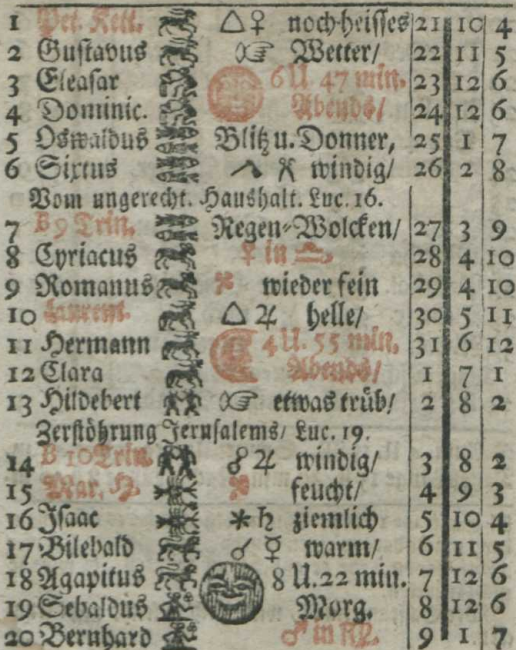 1 Pet. Kett. △♀ noch heisses 21 10 4
2 Gustavus ☞ Wetter/ 22 11 5
3 Eleasar 6 U 47 min. 23 12 6
4 Dominic. Abends/ 24 12 6
5 Oswaldus Blitz u. Donner, 25 1 7
6 Sixtus windig/ 26 2 8
Vom ungerecht. Haushalt. Luc. 16.
7 B 9 Trin. Regen-Wolcken/ 27 3 9
8 Cyriacus ♀ in ♎ 28 4 10
9 Romanus wieder fein 29 4 10
10 Laurent. △ ♃ helle/ 30 5 11
11 Hermann 4 U. 55 min. 31 6 12
12 Clara Abends/ 1 7 1
13 Hildebert ☞ etwas trüb/ 2 8 2
Zerstöhrung Jerusalems/ Luc. 19.
14 B 10 Trin. ☍ ♃ windig/ 3 8 2
15 Mar. H. feucht/ 4 9 3
16 Isaac ⚹ ♄ ziemlich 5 10 4
17 Bilebald ☌ ☿ warm/ 6 11 5
18 Agapitus 8 U. 22 min. 7 12 6
19 Sebaldus Morg. 8 12 6
20 Bernhard ♂ in ♍. 9 1 7